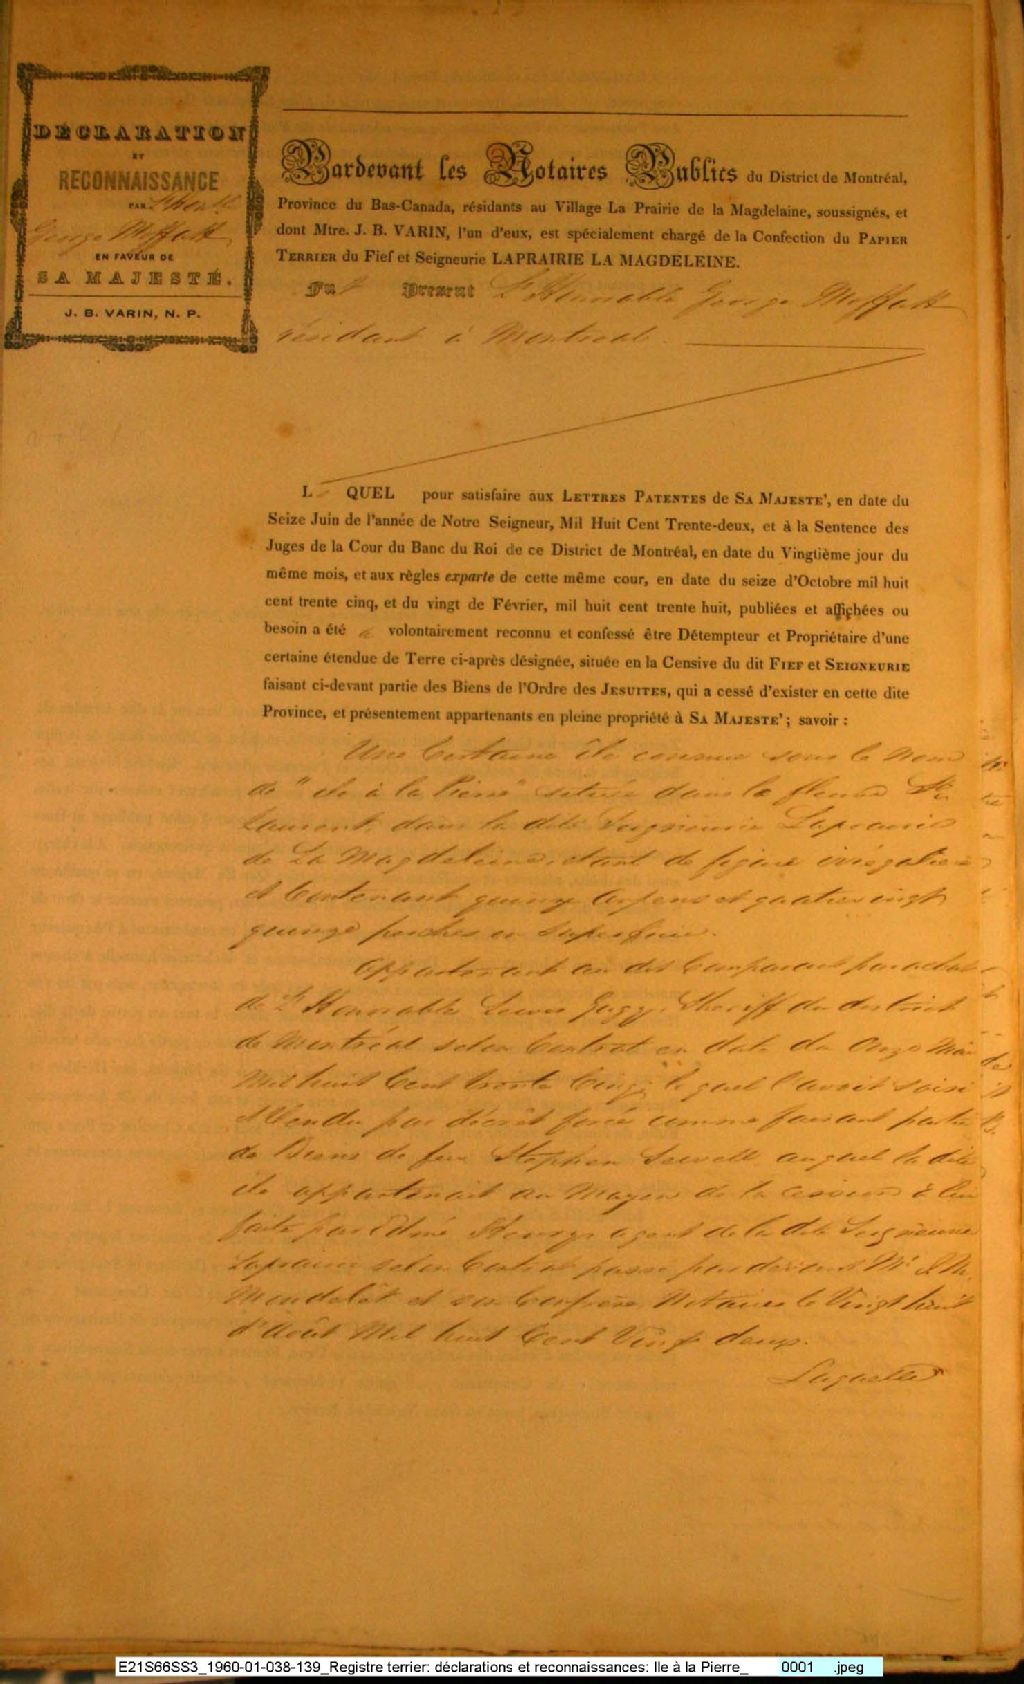 DÉCLARATION
ET
RECONNAISSANCE
PAR L'honble
George Moffatt
EN FAVEUR DE
SA MAJESTÉ.
J. B. VARIN, N. P.
Pardevant les Notaires Publics du District de Montréal,
Province du Bas-Canada, résidants au Village La Prairie de la Magdelaine, soussignés, et
dont Mtre. J. B. VARIN, l'un d'eux, est spécialement chargé de la Confection du PAPIER
TERRIER du Fief et Seigneurie LAPRAIRIE LA MAGDELEINE.
Fut Present L'Honorable George Moffatt
résidant à Montreal.
LE QUEL pour satisfaire aux LETTRES PATENTES de SA MAJESTE', en date du
Seize Juin de l'année de Notre Seigneur, Mil Huit Cent Trente-deux, et à la Sentence des
Juges de la Cour du Banc du Roi de ce District de Montréal, en date du Vingtième jour du
même mois, et aux règles exparte de cette même cour, en date du seize d'Octobre mil huit
cent trente cinq, et du vingt de Février, mil huit cent trente huit, publiées et affichées ou
besoin a été a volontairement reconnu et confessé être Détempteur et Propriétaire d'une
certaine étendue de Terre ci-après désignée, située en la Censive du dit FIEF et SEIGNEURIE
faisant ci-devant partie des Biens de l'Ordre des JESUITES, qui a cessé d'exister en cette dite
Province, et présentement appartenants en pleine propriété à SA MAJESTE'; savoir :
Une Certaine île connue sous le nom
de "ile à la Pierre" située dans le fleuve St
Laurent, dans la dite Seigneurie Laprairie
de La Magdeleine, étant de figure irrégulière
et Contenant quinze Arpens et quatre vingt
quinze perches en Superficie.
Appartenant au dit Comparant par achat
de L'Honorable Louis Gugy, Sheriff du district
de Montréal selon Contrat en date du Onze Mai
Mil huit Cent trente Cinq, lequel l'avoit saisi
et Vendu par décrêt forcé comme faisant partie
de Biens de feu Stephen Sewell auquel la dite
ile appartenait au Moyen de la cession à lui
faite par Edmé Henry agent de la dite Seigneurie
Laprairie selon Contrat passé pardevant Mr J. M.
Mondelêt et son Confrère Notaires le Vingt huit
d'Août Mil huit Cent Vingt deux.
Laquelle
E21S66SS3_1960-01-038-139_Registre terrier: déclarations et reconnaissances: Ile à la Pierre_ 0001 .jpeg